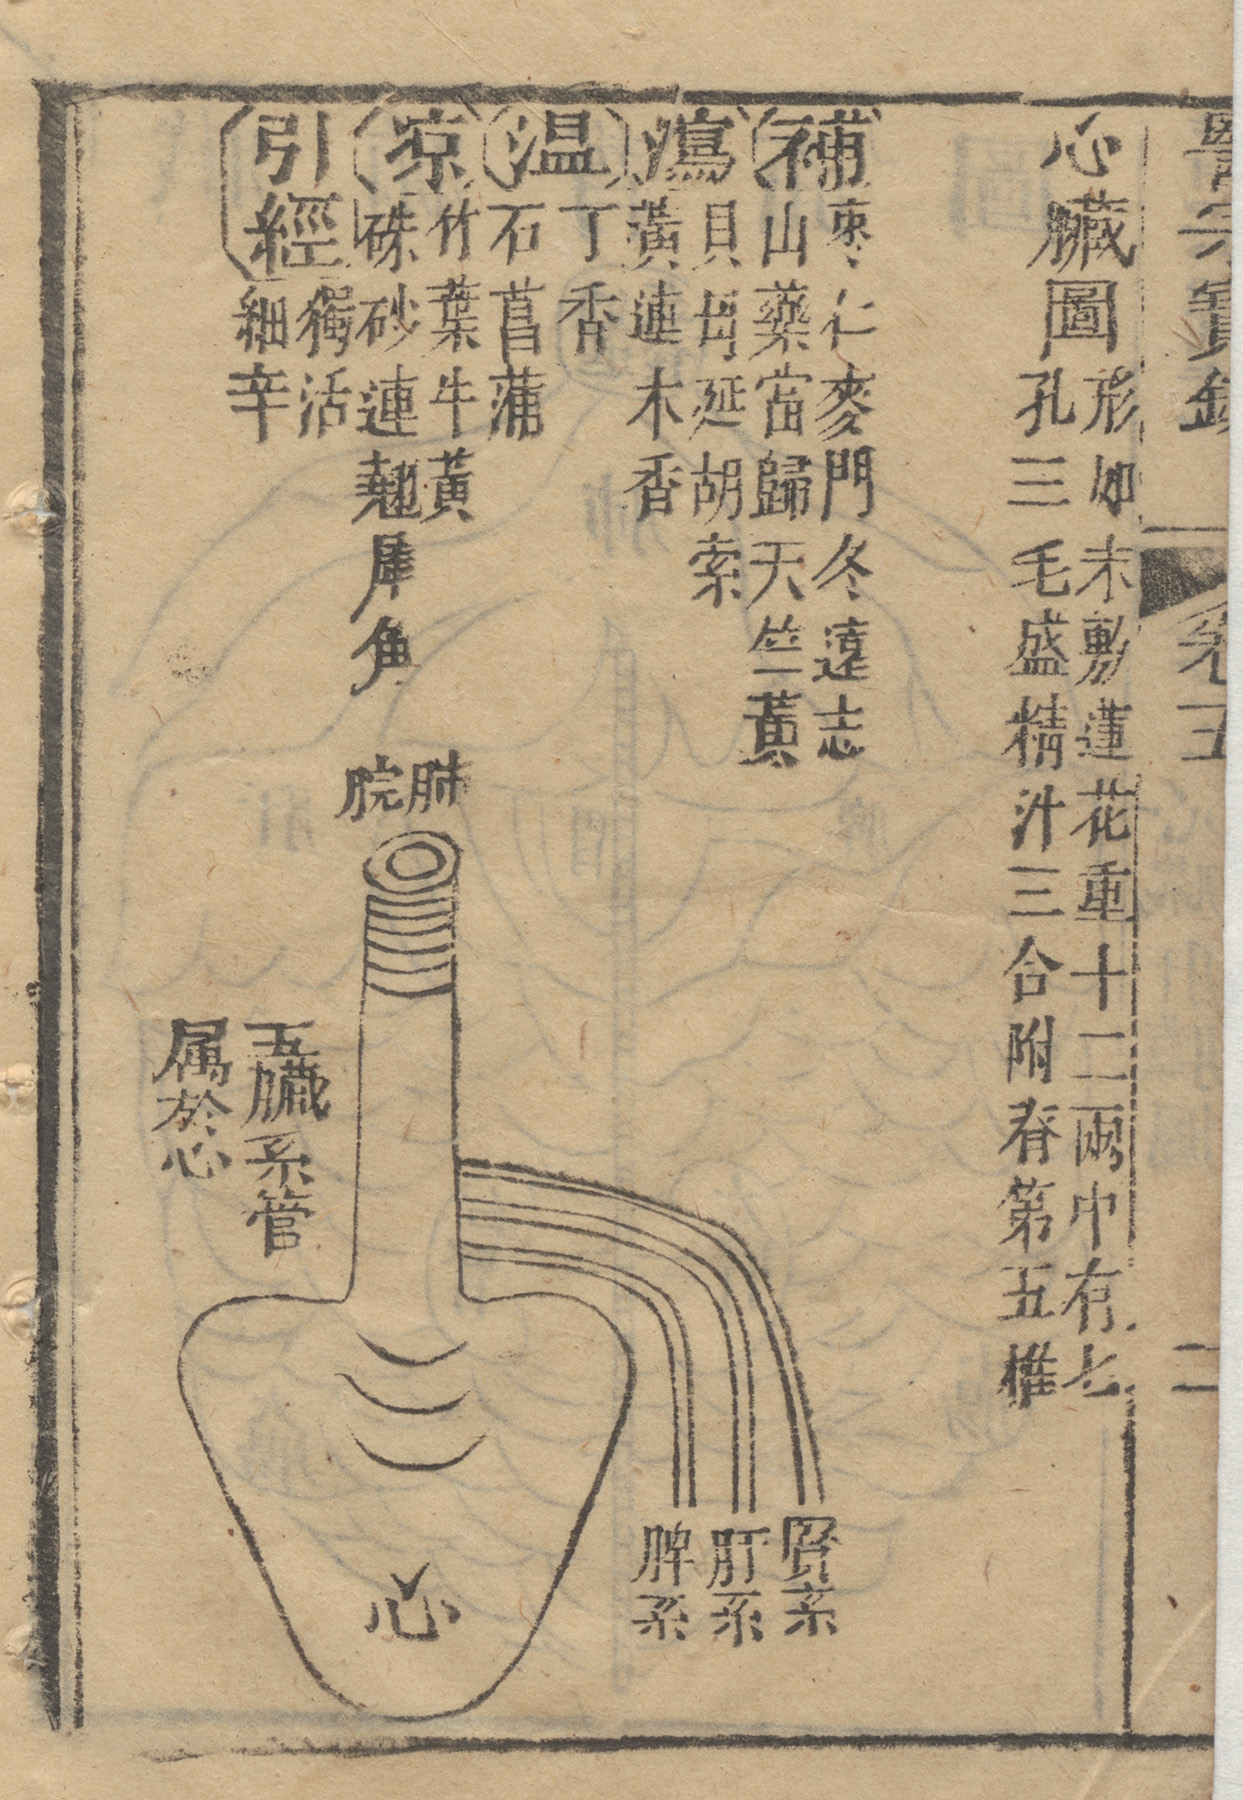 心臟圖
形如未敷蓮花重十二兩中有七
孔三毛盛精汁三合附脊第五椎
補
棗仁麥門冬遠志
山藥當歸天竺黃
瀉
貝母延胡索
黃連木香
温
丁香
石菖蒲
凉
竹葉牛黃
硃砂連翹犀角
引經
獨活
細辛
肺脘
五臟系管
属於心
腎系
肝系
脾系
心
卷五
二